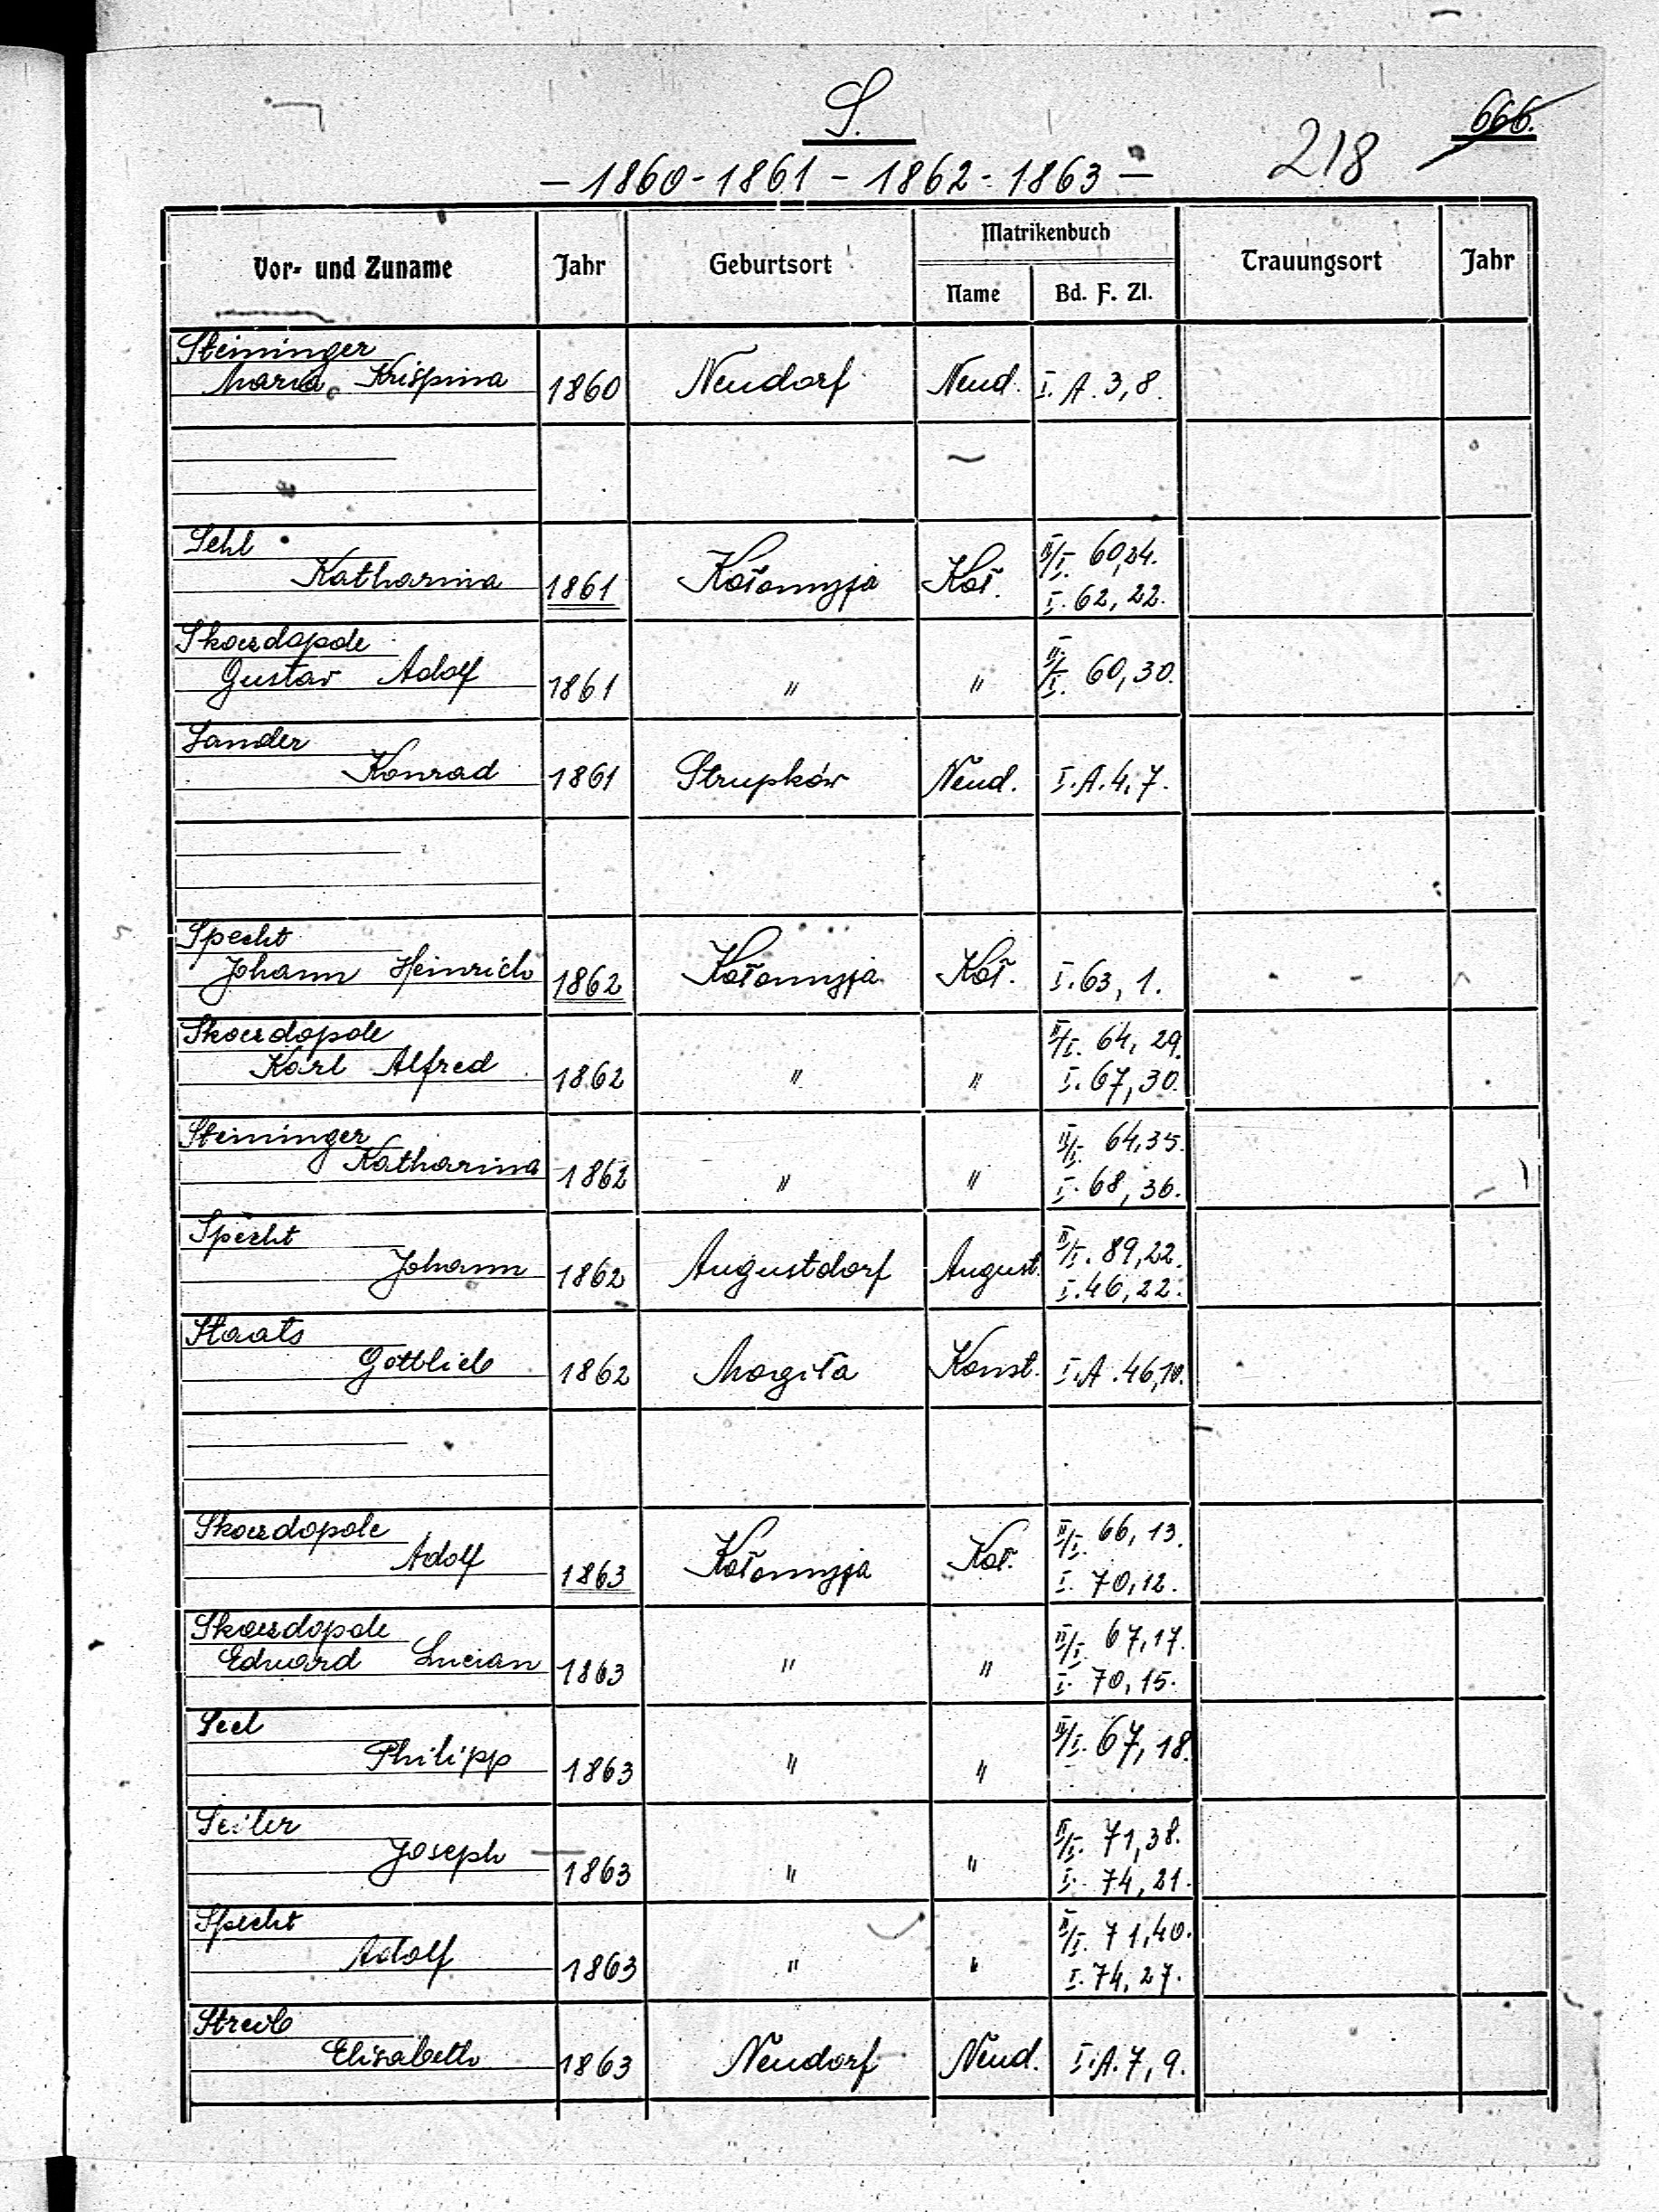 S.
666.
218
- 1860 - 1861 - 1862 - 1863 -
Vor- und Zuname Jahr Geburtsort Matrikenbuch Trauungsort Jahr
Name Bd. F. Zl.
Steininger
Maria Krispina 1860 Neudorf Neud. I. A. 3, 8.
Sehl II/I. 60,24.
Katharina 1861 Kołomyja Koł. I. 62, 22.
Skoerdopole
Gustav Adolf 1861 " " II/I. 60, 30.
Sander
Konrad 1861 Strupków Neud. I. A. 4, 7.
Specht
Johann Heinrich 1862 Kołomyja Koł. I. 63, 1.
Skoerdopole II/I. 64, 29.
Karl Alfred 1862 " " I. 67, 30.
Steininger II/I. 64, 35.
Katharina 1862 " " I. 68, 36.
Specht II/I. 89, 22.
Johann 1862 Augustdorf August. I. 46, 22.
Staats
Gottlieb 1862 Mogiła Konst. I. A. 46, 10.
Skoerdopole II/I. 66, 13.
Adolf 1863 Kołomyja Koł. I. 70, 12.
Skoerdopole II/I. 67, 17.
Eduard Lucian 1863 " " I. 70, 15.
Seel II/I. 67, 18.
Philipp 1863 " "
Seiler II/I. 71, 38.
Joseph 1863 " " I. 74, 21.
Specht II/I. 71, 40.
Adolf 1863 " " I. 74, 27.
Streib
Elisabeth 1863 Neudorf Neud. I. A. 7, 9.